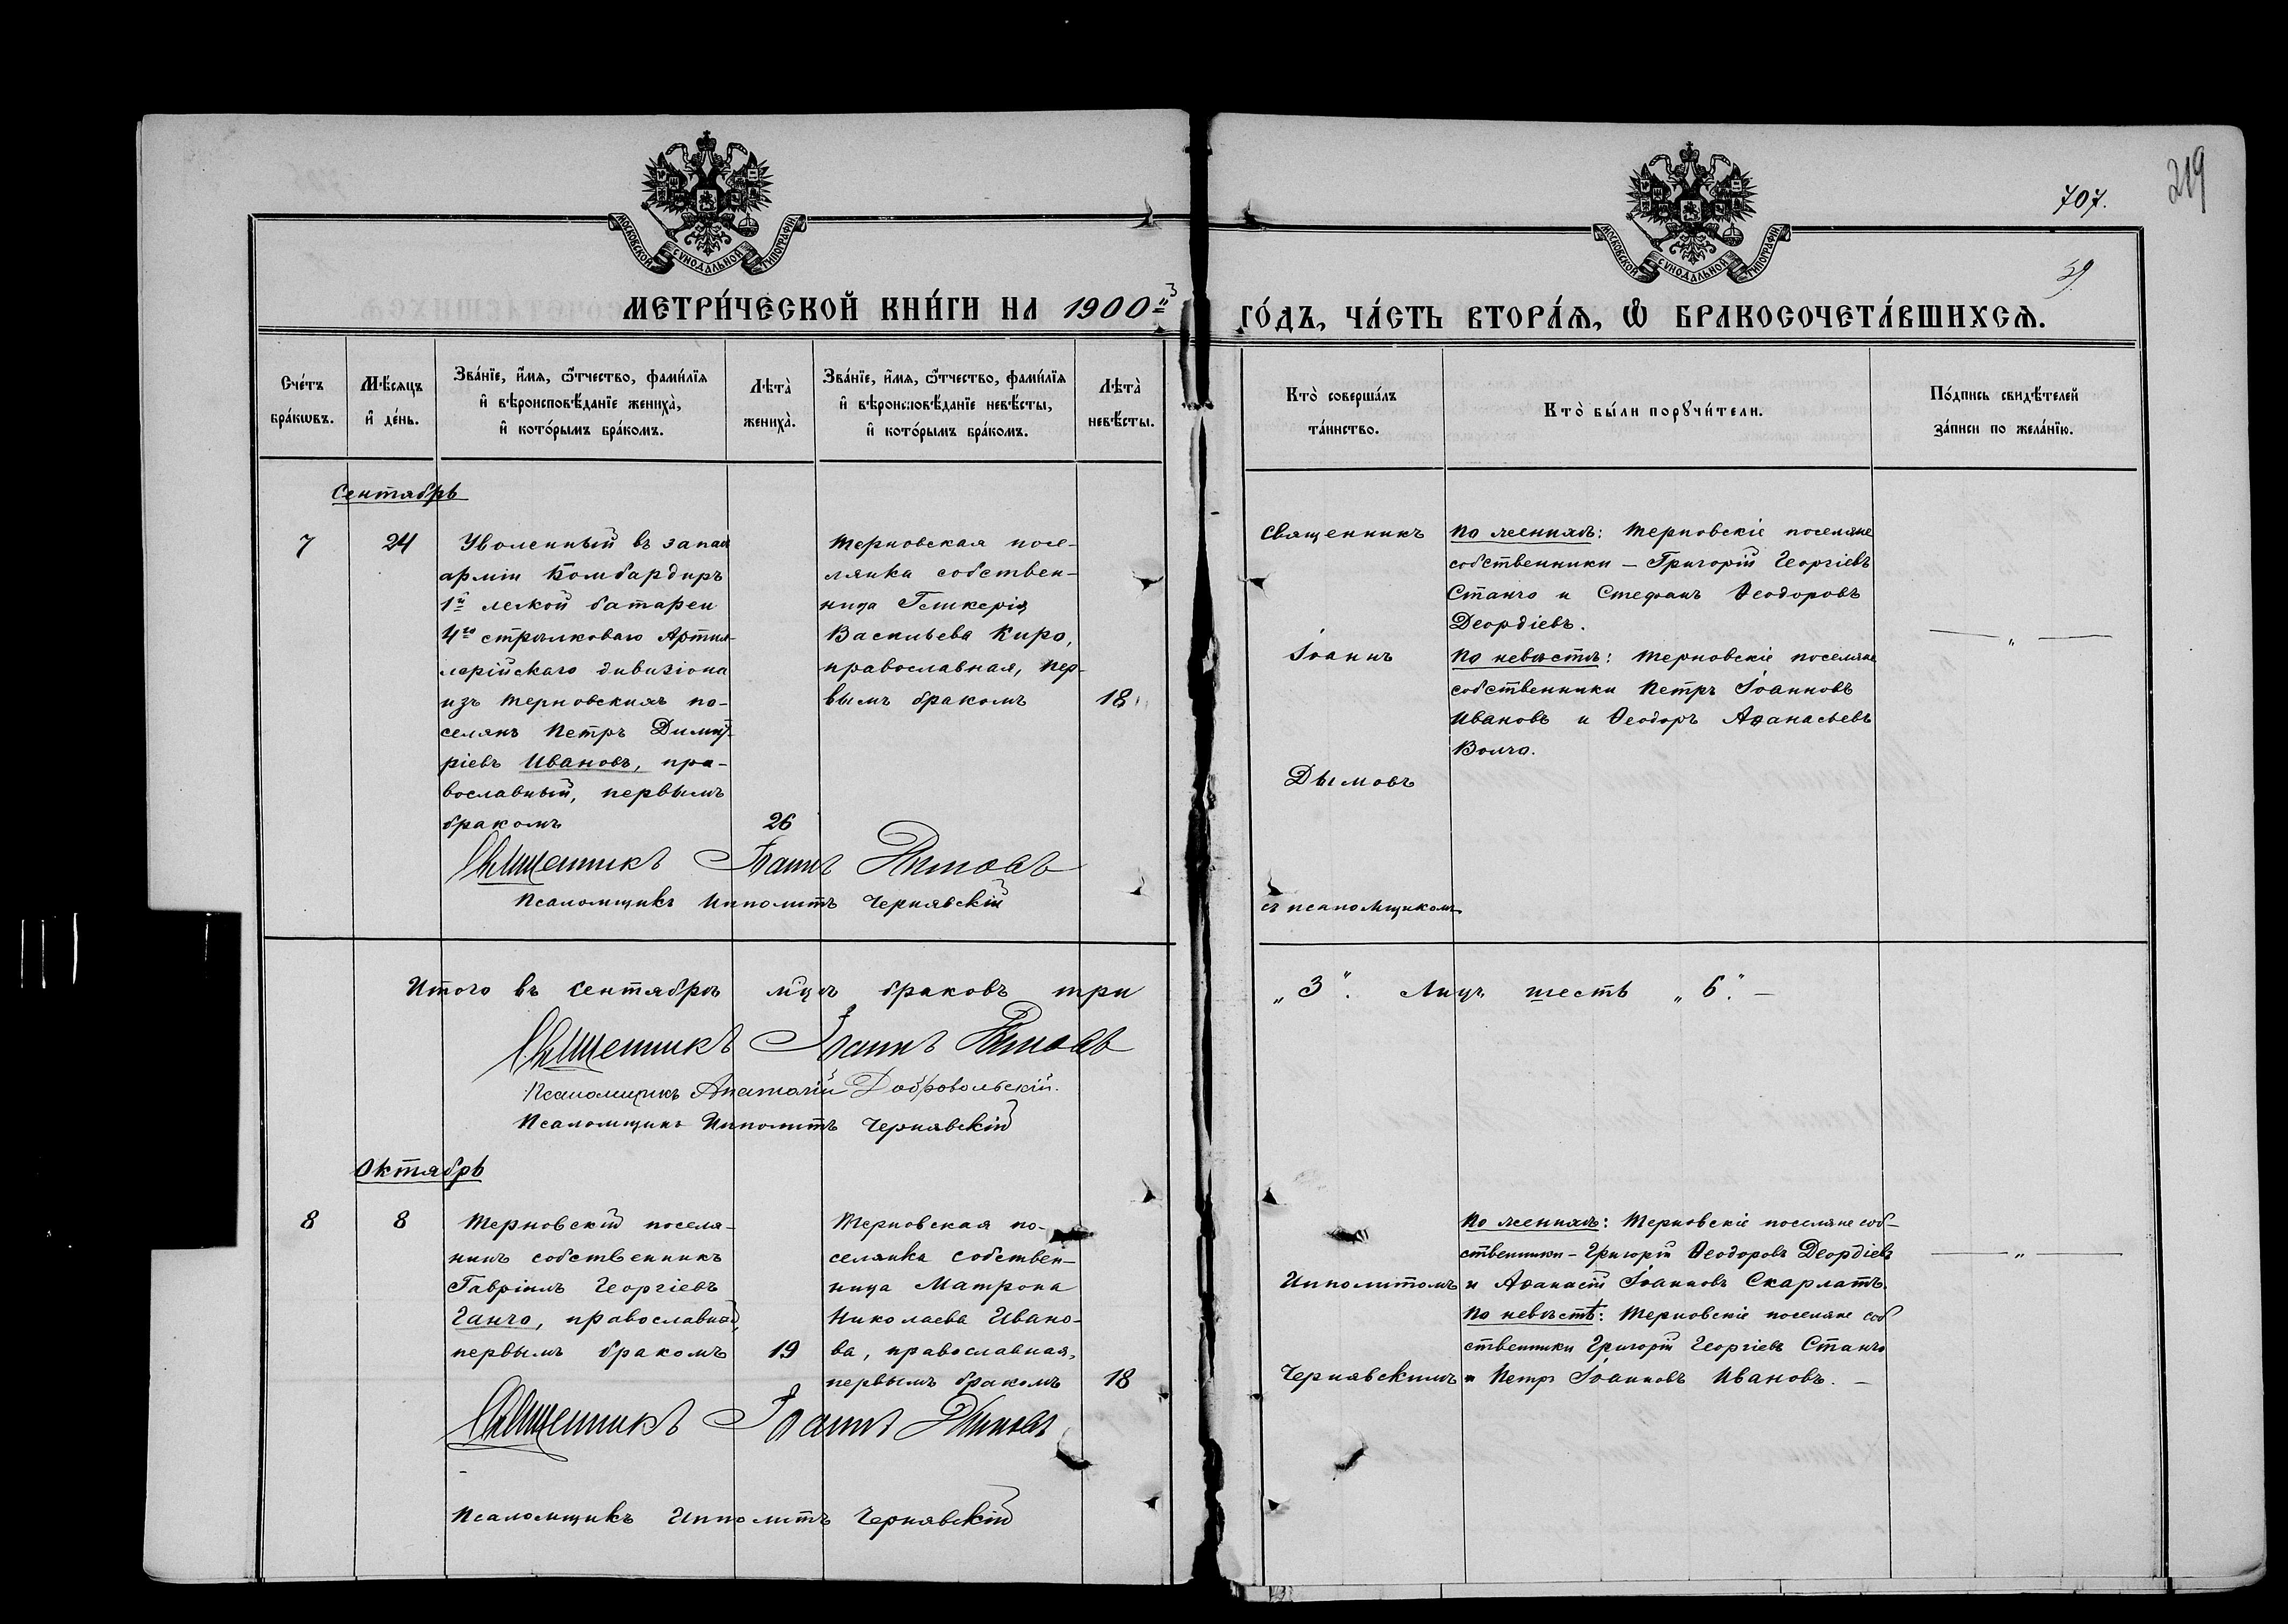 707.
219
39
МОСКОВСКОЙ СУНОДАЛЬНОЙ ТИПОГРАФІИ
МОСКОВСКОЙ СУНОДАЛЬНОЙ ТИПОГРАФІИ
МЕТРИ́ЧЕСКОЙ КНИ́ГИ НА 1900й
ГО́ДЪ, ЧА́СТЬ ВТОРА́Ѧ, Ѽ БРАКОСОЧЕТА́ВШИХСѦ.
Сче́тъ бра́кѡвъ.
Мѣ́сяцъ и҆ де́нь.
Зва́нїе, и҆́мя, ѻ҆́тчество, фами́лїя
и҆ вѣроисповѣ́данїе жениха̀,
и҆ кото́рымъ бра́комъ.
Лѣта̀ жениха̀.
Зва́нїе, и҆́мя, ѻ҆́тчество, фами́лїя
и҆ вѣроисповѣ́данїе невѣ́сты,
и҆ кото́рымъ бра́комъ.
Лѣта̀ невѣ́сты.
Кто̀ соверша́лъ
та́инство.
Кто̀ бы́ли порꙋчи́тели.
По́дпись свидѣ́телей
за́писи по жела́нїю.
Сентябрь
7
24
Уволенный въ запас
арміи Бомбардиръ
1й легкой батареи
4го стрѣлковаго Артил-
лерійскаго дивизіона
изъ терновскихъ по-
селянъ Петръ Димит-
ріевъ Ивановъ, пра-
вославный, первымъ
бракомъ
26
Терновская посе-
лянка собствен-
ница Гликерія
Васильева Киро,
православная, пер-
вымъ бракомъ
18
Священникъ
Іоаннъ
Дымовъ
съ псаломщикомъ
По женихѣ: Терновскіе поселяне
собственники – Григорій Георгіевъ
Станчо и Стефанъ Ѳеодоровъ
Деордіевъ.
По невѣстѣ: Терновскіе поселяне
собственники Петръ Іоанновъ
Ивановъ и Ѳеодоръ Аѳанасьевъ
Волчо.
— „ —
Священникъ Іоаннъ Дымовъ
Псаломщикъ Ипполитъ Чернявскій
Итого въ сентябрѣ м-цѣ браковъ три
„3“. Лицъ шесть „6“. –
Священникъ Іоаннъ Дымовъ
Псаломщикъ Анатолій Добровольскій.
Псаломщикъ Ипполитъ Чернявскій
Октябрь
8
8
Терновскій поселя-
нинъ собственникъ
Гавріилъ Георгіевъ
Ганчо, православный,
первымъ бракомъ
19
Терновская по-
селянка собствен-
ница Матрона
Николаева Ивано-
ва, православная,
первымъ бракомъ
18
Ипполитомъ
Чернявскимъ
По женихѣ: Терновскіе поселяне соб-
ственники – Григорій Ѳеодоровъ Деордіевъ
и Аѳанасій Іоанновъ Скарлатъ.
По невѣстѣ: Терновскіе поселяне соб
ственники Григорій Георгіевъ Станчо
и Петръ Іоанновъ Ивановъ. –
— „ —
Священникъ Іоаннъ Дымовъ
Псаломщикъ Ипполитъ Чернявскій